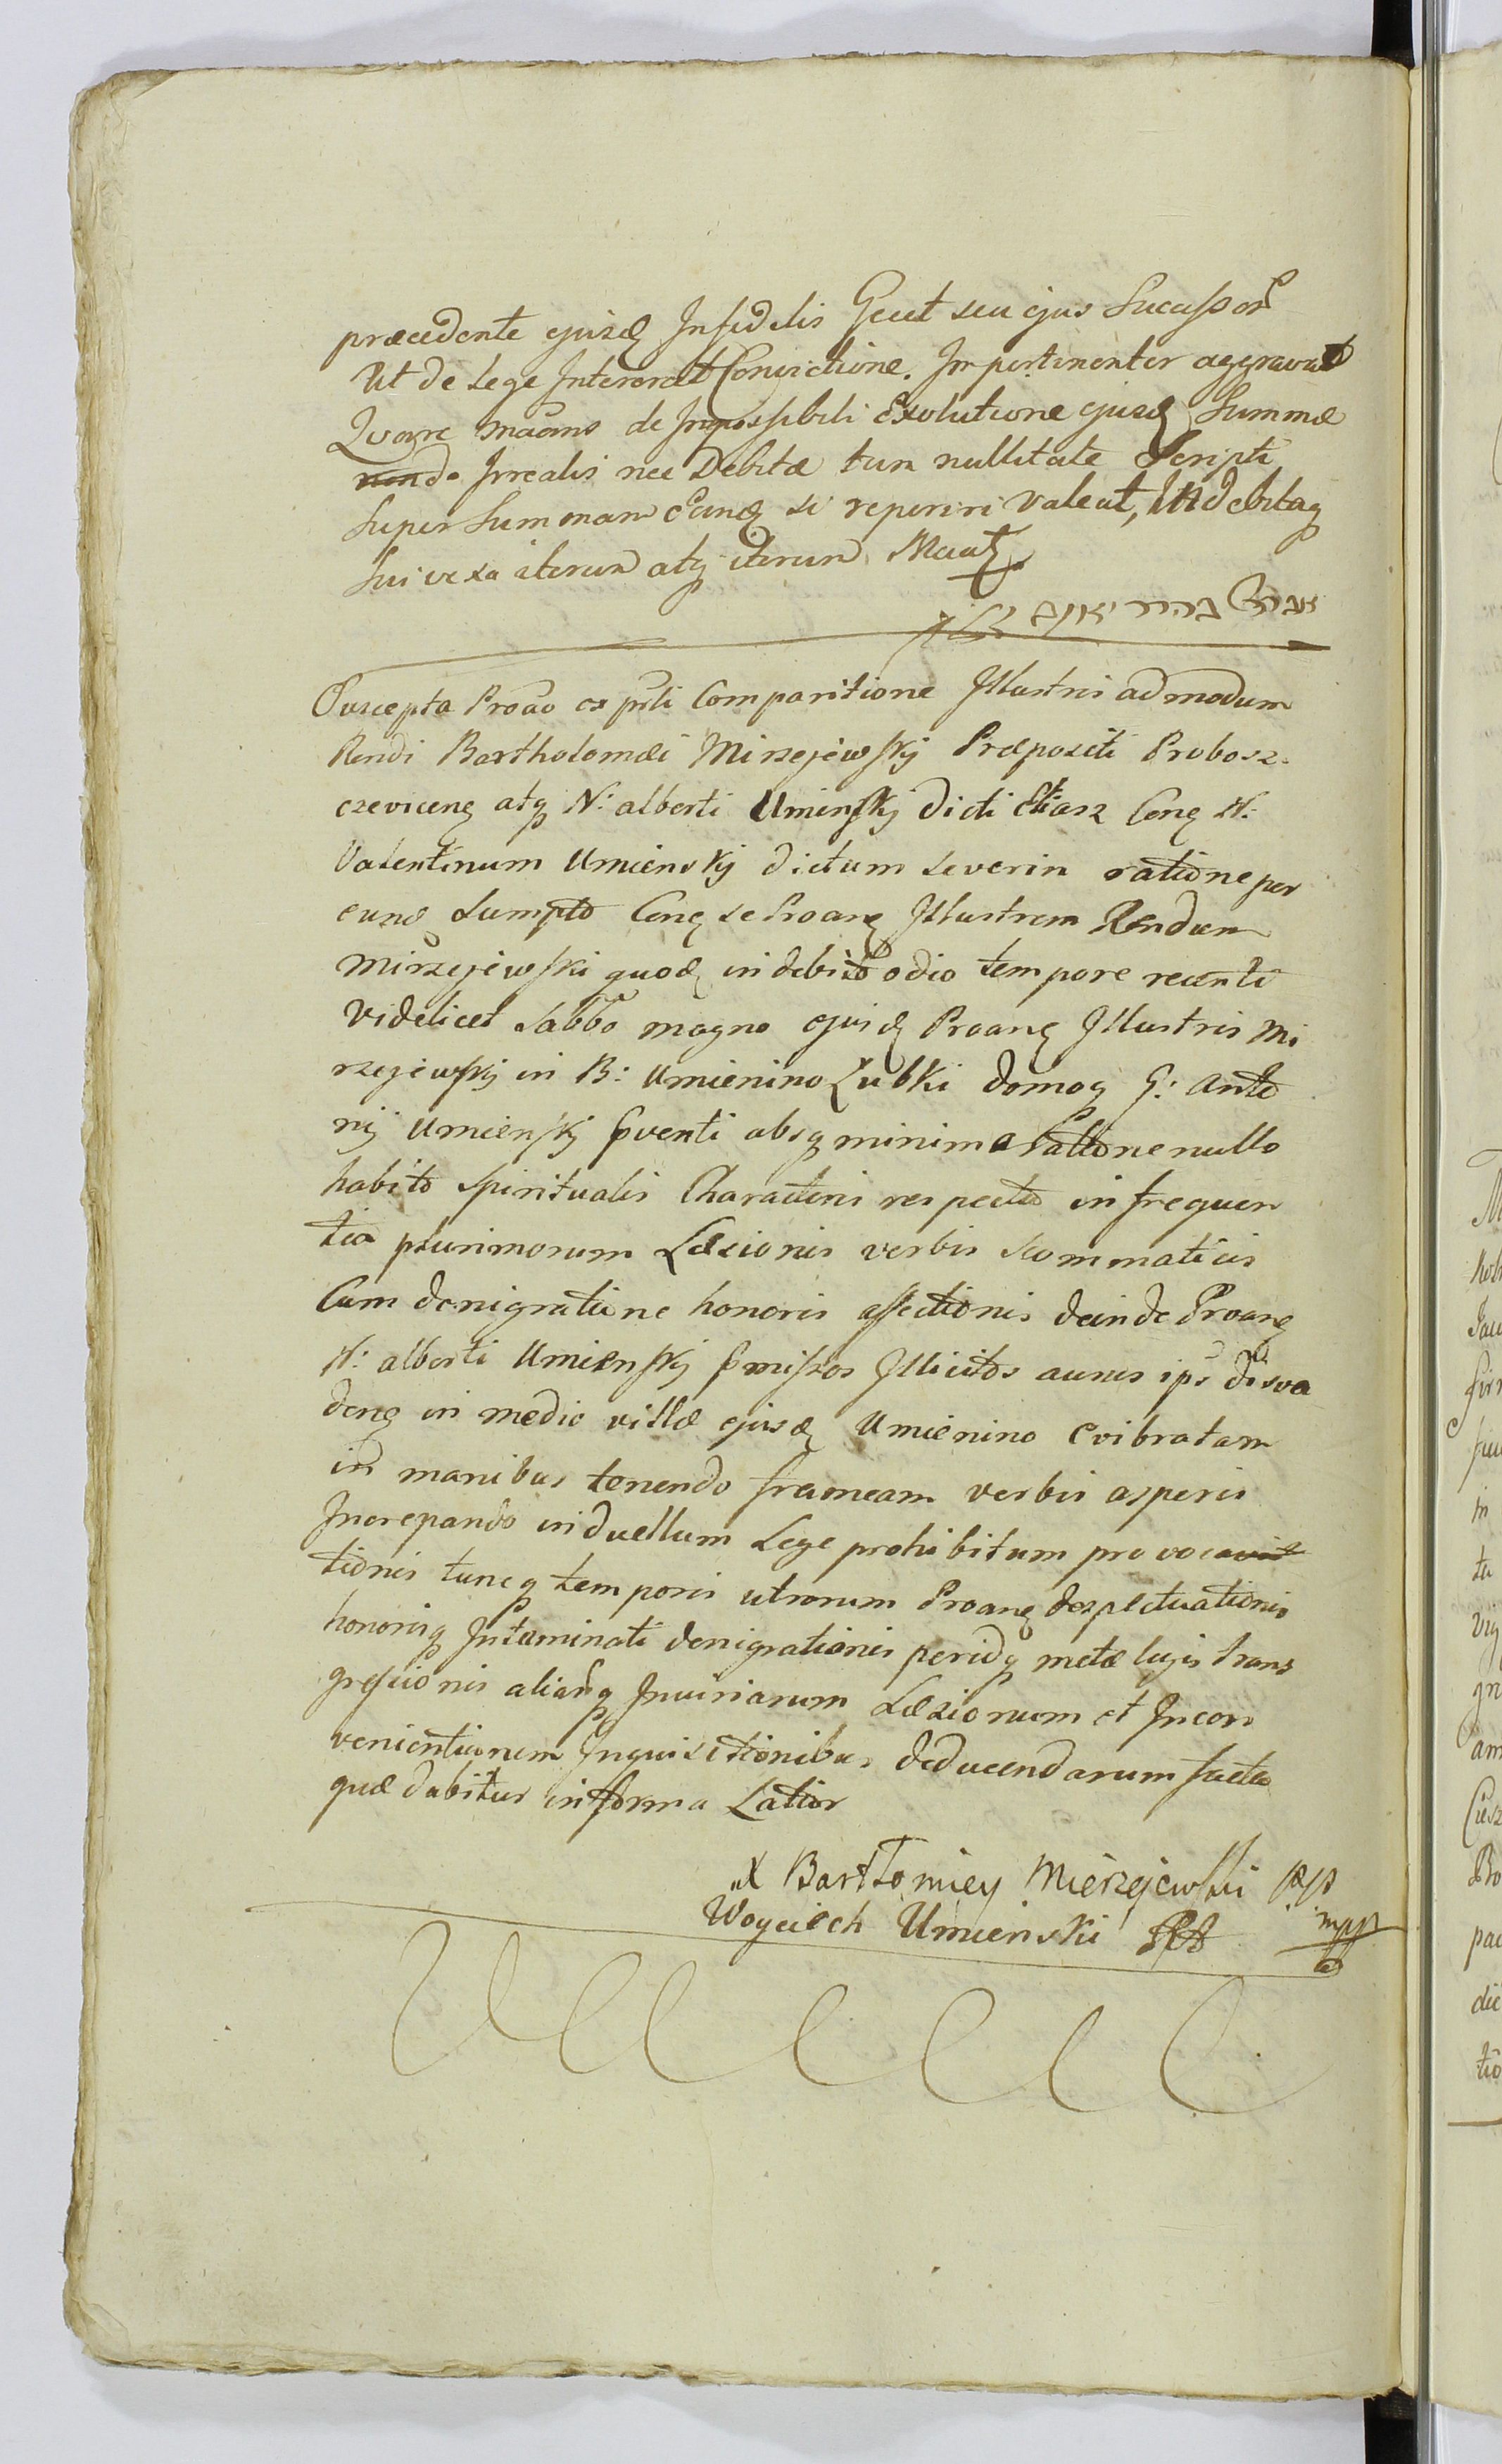 præcedente ejusd Infidelis Geret seu ejus Sucessor
Ut de Lege Intererat Convictione. Impertinenter aggravat
Qvare maãns de Impossibili Exolutione ejusd Summæ
Irrealis nec Debitæ tum nullitate Scripti
Super Summam eand si reperiri valeat, Indebitaq
sui vexa iterum atq iterum Maat
Suscepta Proão ex prsti Comparitione Illustris admodum
Rendi Bartholomæi Mirzejewskij Præpositi Probosz-
czevicens atq N: alberti Umienskij dicti Eliasz Cong N:
Valentinum Umienskij dictum Severin ratione per
eund Sumpto Cong se Proang Illustrem Rendum
Mirzejewski quod indebito odio tempore recenti
videlicet Sabbo magno ejusd Proang Illustris Mi
rzejewskij in B: Umienino Łubki domoq G: Anto
nij Umienskij pventi absq minima ratione nullo
habito Spiritualis Characteris respectu in frequen
tia plurimorum Læsionis verbis scommaticis
Cum denigratione honoris affectionis deinde Proang
N: alberti Umienskij pmissos Illicitos ausus ipsi disva
deng in medio villæ ejusd Umienino Evibratam
in manibus tenendo frameam verbis asperis
Increpando in duellum Lege prohibitum provocavit
tionis tuncq temporis utrorum Proang despectuationis
honorisq Intaminati denigrationis peridq metæ legis trans
gressionis aliarq Iniuriarum Læsionum et Incon
venientiarum Inquisitionibus deducendarum facta
quæ dabitur in forma Latior
X Bartłomiey Mierzejewski
Woyciech Umienski mpp